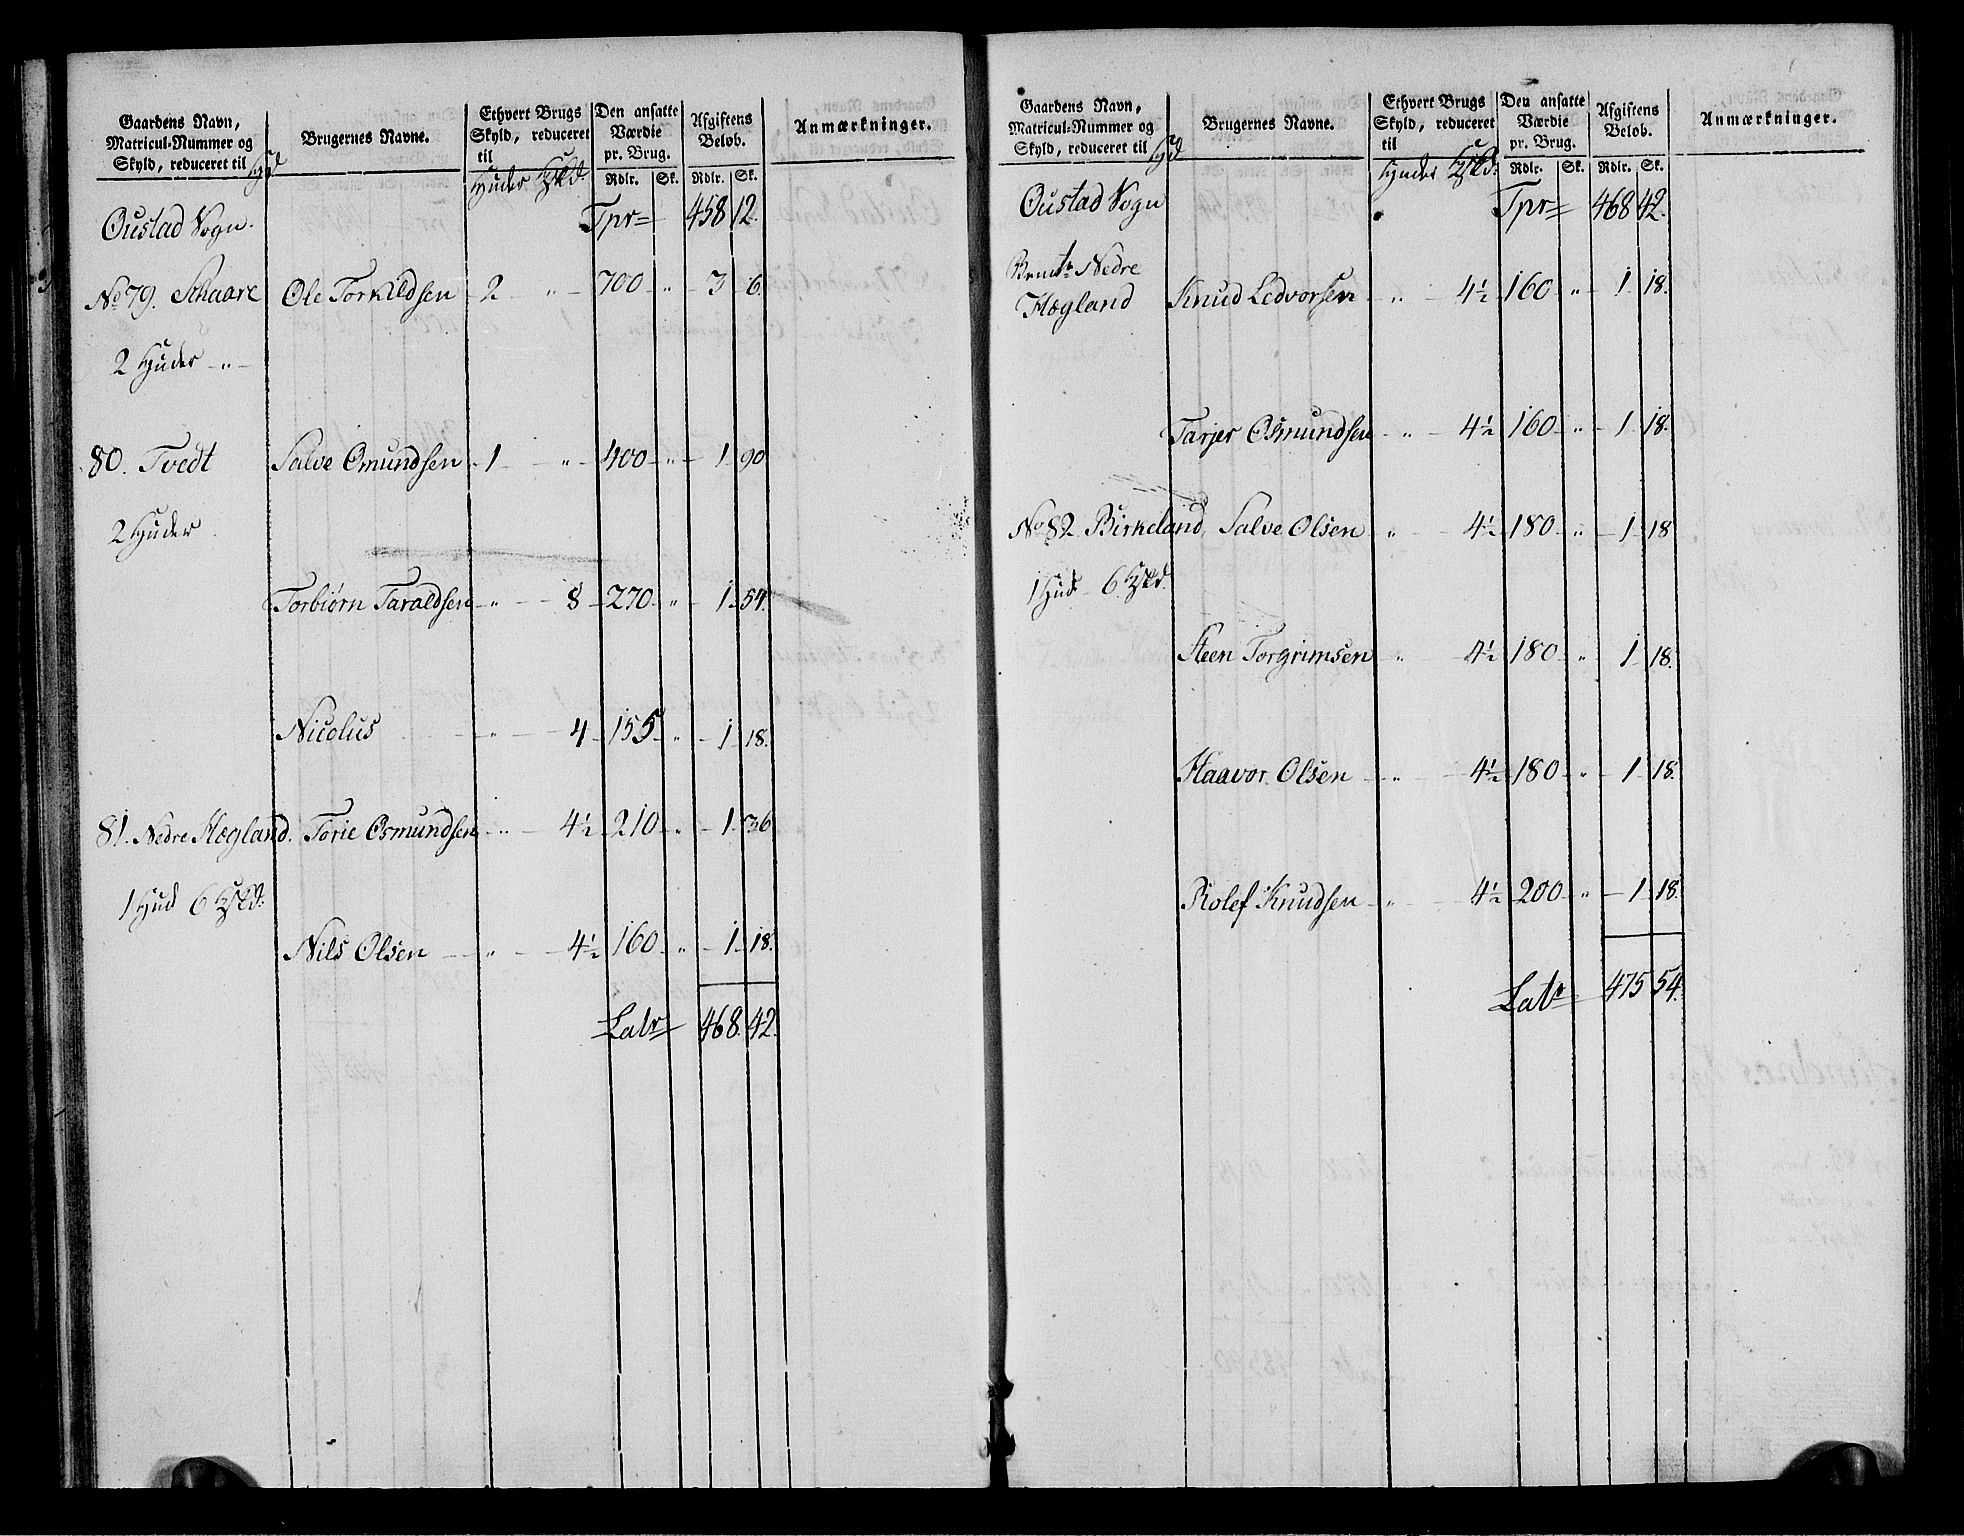 Gaardens Navn, Matricul-Nummer og Skyld, reduceret til Hd | Brugernes Navne. | Ethvert Brugs Skyld, reduceret til Huder | Den ansatte Værdie pr. Brug. Rdlr. Sk. | Afgiftens Beløb. Rdlr. Sk. | Anmærkninger.
Oustad Sogn. Tpr 458 12.
No 79. Skaare Ole Torkildsen 2 " 700 " 3 6.
2 Huder "
80. Tvedt Salve Omundsen 1 " 400 " 1 90
2 Huder
Torbiørn Taraldsen " 8 270 " 1 54.
Nicolus " 4 155 " 1 18.
81. Nedre Høgland. Torie Osmundsen " 4½ 210 " 1 36
1 Hud 6
Nils Olsen " 4½ 160 " 1 18.
Latr 468. 42.
Gaardens Navn, Matricul-Nummer og Skyld, reduceret til Hd | Brugernes Navne. | Ethvert Brugs Skyld, reduceret til Huder | Den ansatte Værdie pr. Brug. Rdlr. Sk. | Afgiftens Beløb. Rdlr. Sk. | Anmærkninger.
Oustad Sogn Tpr 468 42.
Nedre
Høgland Knud Ledvorsen " 4½ 160 " 1 18.
Tarjer Osmundsen " 4½ 160 " 1 18.
No 82. Birkeland, Salve Olsen " 4½ 180 " 1 18
1 Hud 6
Steen Torgrimsen " 4½ 180 " 1 18.
Haavor Olsen " 4½ 180 " 1 18.
Rolef Knudsen " 4½ 200 " 1 18.
Latr 475 54.